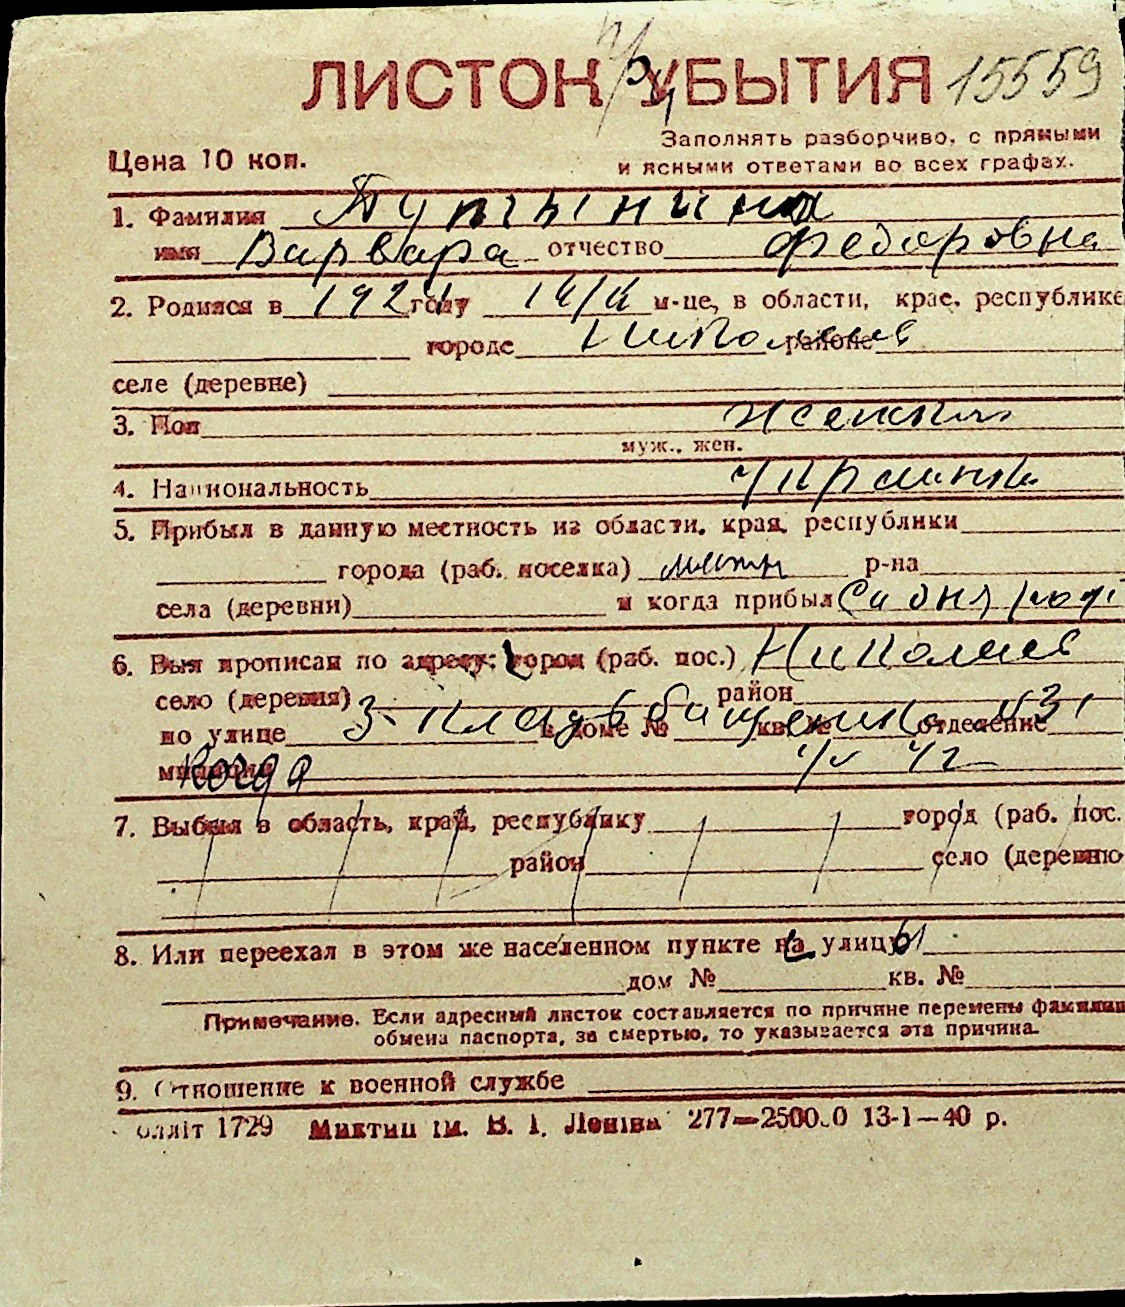 ЛИСТОК УБЫТИЯ 15559
Заполнять разборчиво, с прямыми
Цена 10 коп. и ясными ответами во всех графах.
1. Фамилия
имя Варвара отчество Федоровна
2. Родился в 192 году м-це, в области, крае, республике
городе Николаев районе
селе (деревне)
3. Пол женский
муж., жен.
4. Национальность Украинка
5. Прибыл в данную местность из области, края, республики
города (раб. поселка) р-на
села (деревни) и когда прибыл
6. Был прописан по адресу: город (раб. пос.) Николаев
село (деревня) район
по улице 3. Кладбищенская в доме № кв. № отделение 31
милиции Когда 42
7. Выбыл в область, край, республику город (раб. пос.
район село (деревню
8. Или переехал в этом же населенном пункте на улицу
дом № кв. №
Примечание. Если адресный листок составляется по причине перемены фамилии
обмена паспорта, за смертью, то указывается эта причина.
9. Отношение к военной службе
облліт 1729 Миктип ім. В. І. Леніна 277—25000 13-1—40 р.